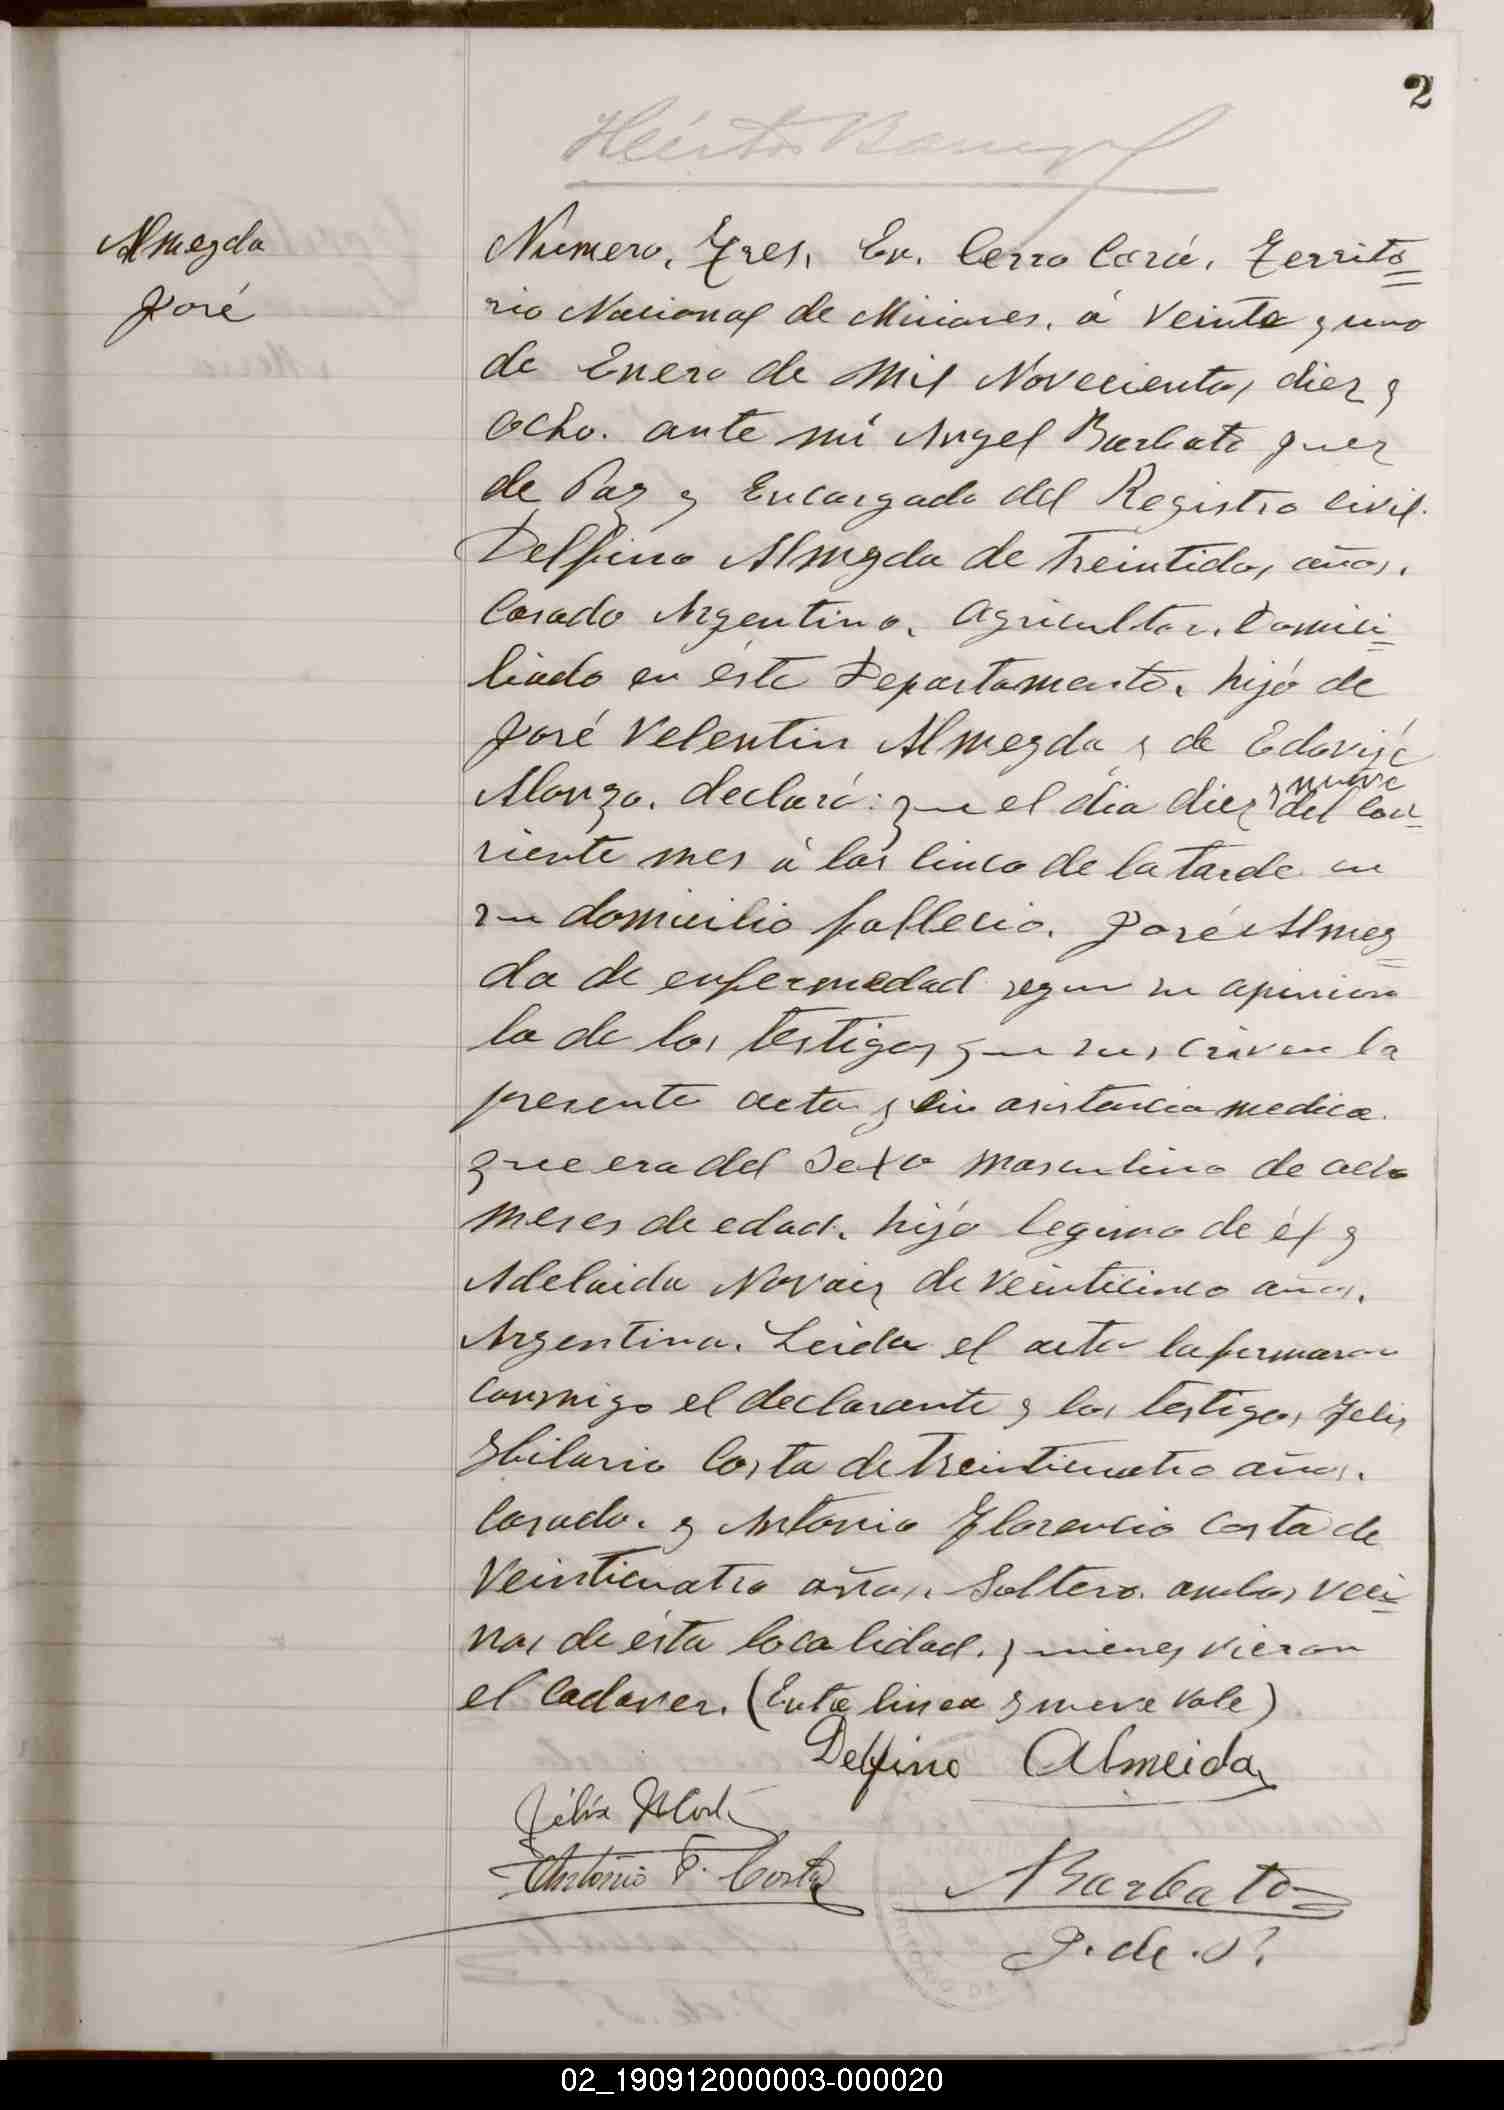 2
Almeyda
José
Número, Tres, En. Cerro Corá, Territo=
rio Nacional de Misiones, á veinte y uno
de Enero de Mil Novecientos diez y
ocho. ante mí Angel Barbato Juez
de Paz y Encargado del Registro Civil.
Delfino Almeyda de treintidos años,
Casado Argentino, Agricultor, Domici=
liado en éste Departamento, hijo de
José Velentin Almeyda y de Edovije
Alonzo, declaró: que el dia diez y nueve del cor=
riente mes á las cinco de la tarde en
su domicilio fallecio, José Almey=
da de enfermedad segun su opinion
la de los testigos que suscriven la
presente acta y sin asistencia medica
que era del Sexo masculino de ocho
meses de edad, hijo legimo de él y
Adelaida Novaiz de veinticinco años,
Argentina. Leida el acta la firmaron
conmigo el declarante y los testigos Felis
Hilario Costa de treinticuatro años,
Casado, y Antonio Florencio Costa de
veinticuatro años, Soltero, ambos veci=
nos de ésta localidad, quienes vieron
el Cadaver. (Entre linea y nueve vale)
Delfino Almeida
Félix H Costa
Antonio F. Costa
ABarbato
J. de P.
02_190912000003-000020